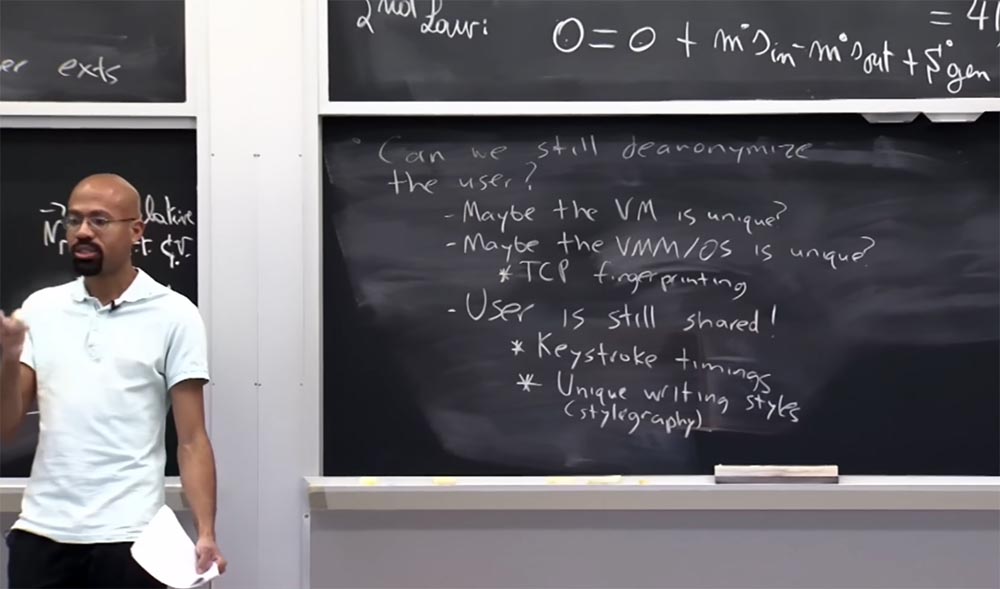 2nd Law:
0=0 + ṁsin-ṁsout + Ṡgen
= 4
er exts
• Can we still deanonymize
the user?
- Maybe the VM is unique?
- Maybe the VMM/OS is unique?
* TCP fingerprinting
- User is still shared!
* Keystroke timings
* Unique writing styles
(stylography)